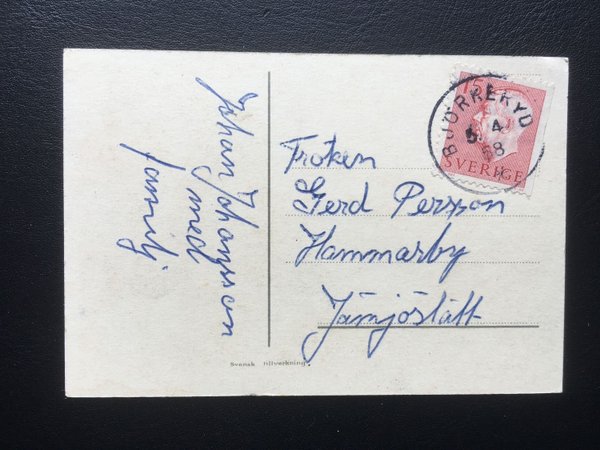 Johan Johansson
med
familj
15
BJÖRKERYD
5. 4.
58
SVERIGE
Fröken
Gerd Persson
Hammarby
Jämjöslätt
Svensk tillverkning.